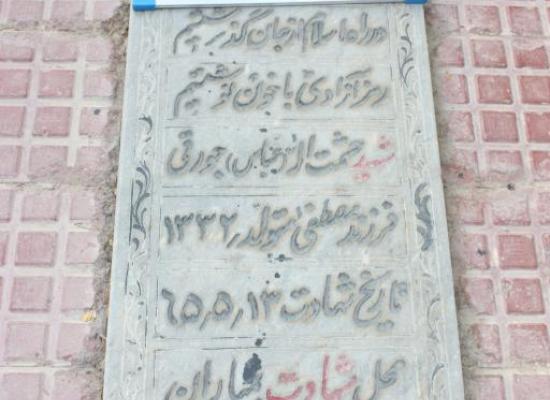 در راه اسلام از جان گذشتیم
رمز آزادی با خون نوشتیم
شهید حشمت اله (عباس) جورقی
فرزند مصطفی متولد ۱۳۳۲
تاریخ شهادت ۶۵٫۵٫۱۳
محل شهادت بمباران